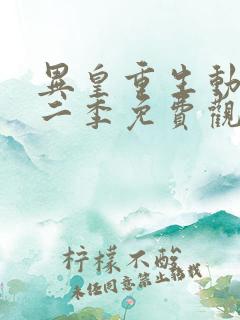 異皇重生動
二季免費觀
柠檬不酸
未经同意禁止转载